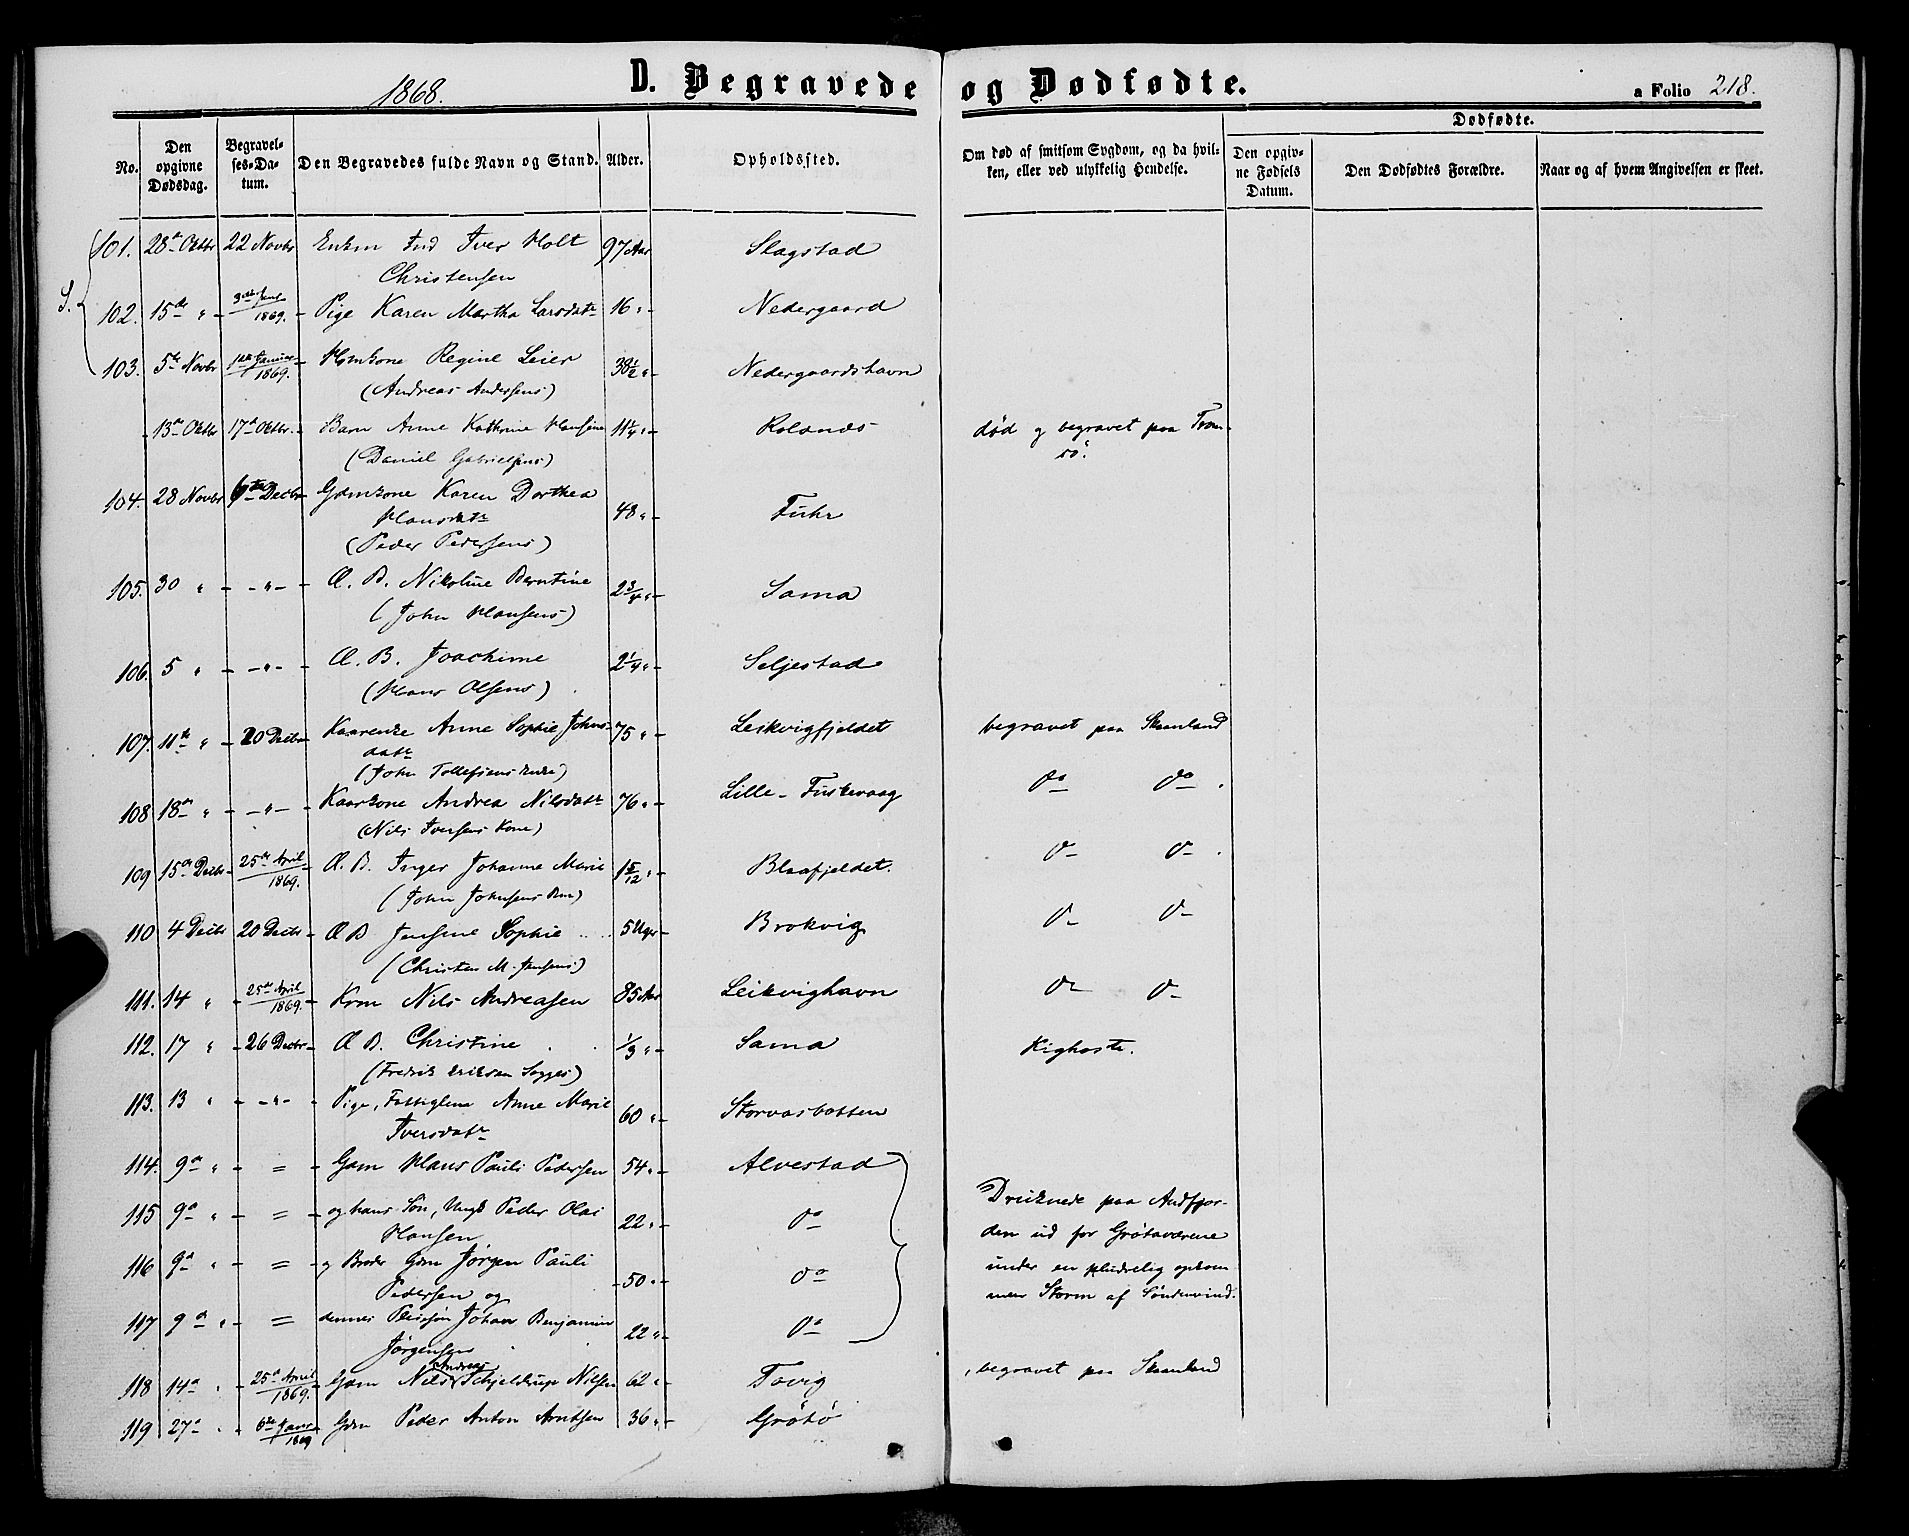 1868.
D. Begravede og Dødfødte.
a Folio 218.
No.
Den opgivne Dødsdag.
Begravel-ses-Da-tum.
Den Begravedes fulde Navn og Stand.
Alder.
Opholdssted.
Om død af smitsom Sygdom, og da hvil-ken, eller ved ulykkelig Hendelse.
Dødfødte.
Den opgiv-ne Fødsels Datum.
Den Dødfødtes Forældre.
Naar og af hvem Angivelsen er skeet.
S.
101. 28de Oktbr 22 Novbr Iver Holt 97 Aar Slagstad
Christensen
102. 15de " 3die 1869. Pige Karen Martha Larsdatr 16 " Nedergaard
103. 5te Novbr 1ste Januar 1869. Regine Leier 38½ " Nedergaardshavn
(Andreas Andersens)
13de Oktbr 17de Oktbr. Barn Anne Kathrine Hansine 11¼ " Rolanes død og begravet paa Trom-
sø.
(Daniel Gabrielsens)
104. 28 Novbr 6te Decbr Gdmkone Karen Dorthea 48 " Fuhr
Hansdatr
(Peder Pedersens)
105. 30 " - " - Æ. B. Nikoline Berntine 2¾ " Sama
(John Hansens)
106. 5 " - " - Æ. B. Joachime 2¼ " Seljestad
(Hans Olsens)
107. 11te " 20 Decbr Kaarenke Anne Sophie Johns- 75 " Leikvigfjeldet begravet paa Skaanland
datr
(John Tollefsens Enke)
108 18de " - " - Kaarkone Andrea Nilsdatr 76 " Lille-Fuskevaag do do.
(Nils Iversens Kone)
109 15de Decbr 25de April 1869. Æ. B. Inger Johanne Marie 1 5/12 " Blaafjeldet. do do.
(John Johnsens)
110 4 Decbr 20 Decbr Æ B Jensine Sophie 5 Uger Brokvig do do
(Christen M. Jensens)
111. 14 " 25de April 1869. Nils Andreasen 85 Aar Leikvighavn do do
112. 17 " 26 Decbr Æ B. Christine ⅓ " Sama Kighoste.
(Fredrik Eriksen)
113. 13 " - " - Pige, Fattiglem Anne Marie 60 " Storvasbotten
Iversdatr
114. 9de " = Gdm Hans Pauli Pedersen 54 " Alvestad
115 9de " = og hans Søn, Ungk Peder Olai 22 " do
Hansen
116 9de " = og Broder Gdm Jørgen Pauli 50 " do
Pedersen og
117 9de " = dennes Pleiesøn Johan Benjamin 22 " do
Jørgensen
Druknede paa Andfjor-
den ud for Grøtaværene
under en pludselig opkom-
men Storm af Søndenvind.
118 14de " 25de April 1869. Gdm Nils Andreas Schjeldrup Nilsen 62 " Tovig begravet paa Skaanland
119 27de " 6te Janr 1869 Gdm Peder Anton Arntsen 36 " Grøtø